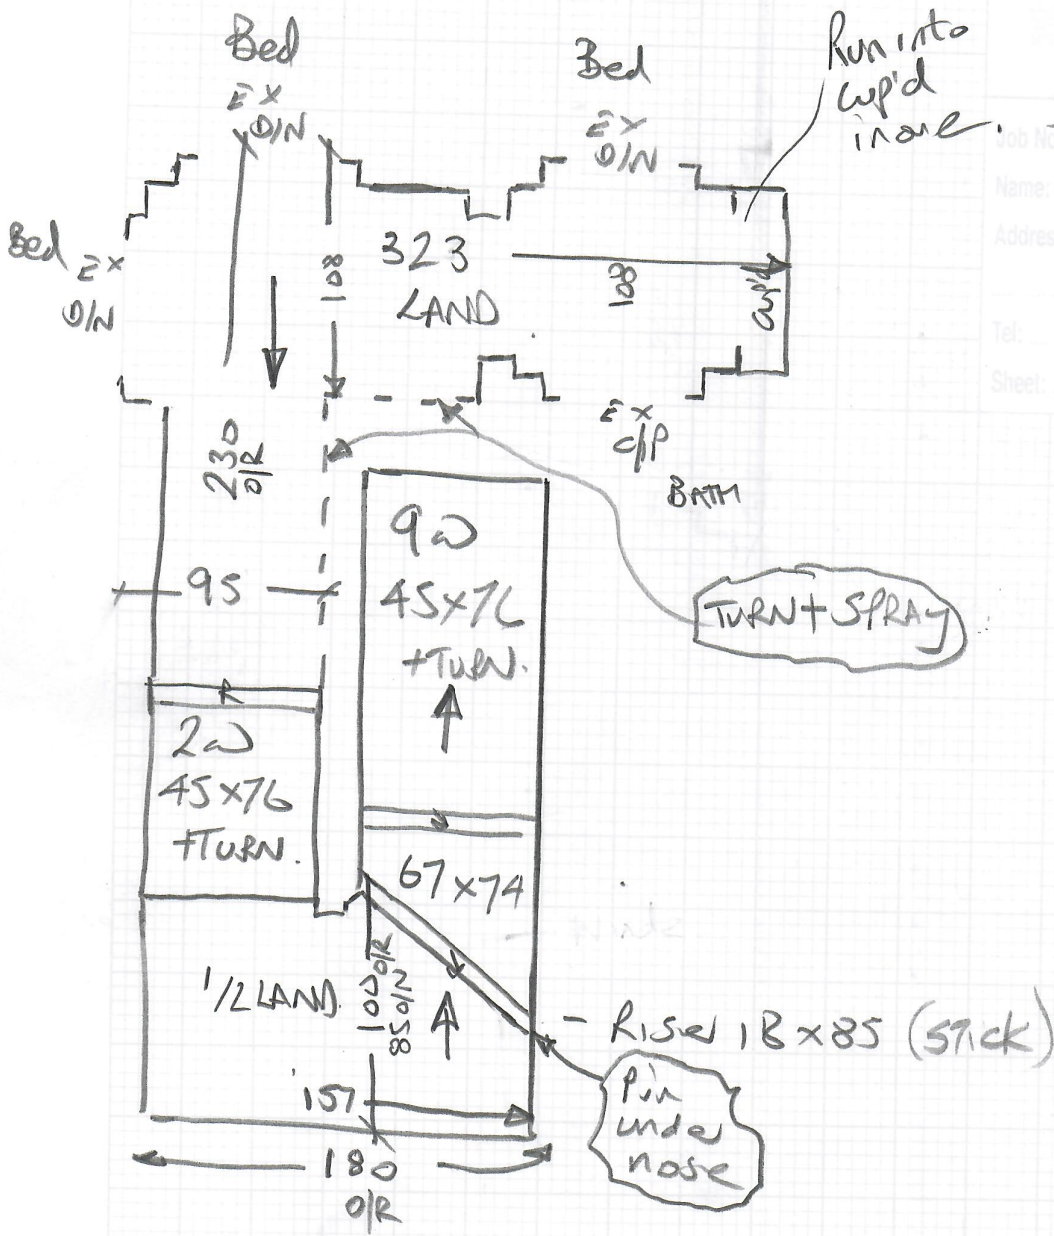 Bed
EX
D/N
Bed
EX
D/N
Run into
cup'd
in one.
Job No
Name:
Addres
Tel:
Sheet:
Bed EX
D/N
323
LAND
108
108
cup'd
EX
C/P
BATH
230
O/R
95
9W
45x76
+TURN.
TURN + SPRAY
R
2W
45x76
+TURN.
67x74
1/2 LAND.
100 O/R
85 O/N
Riser 18 x 85 (STICK)
Pin
under
nose
157
180
O/R